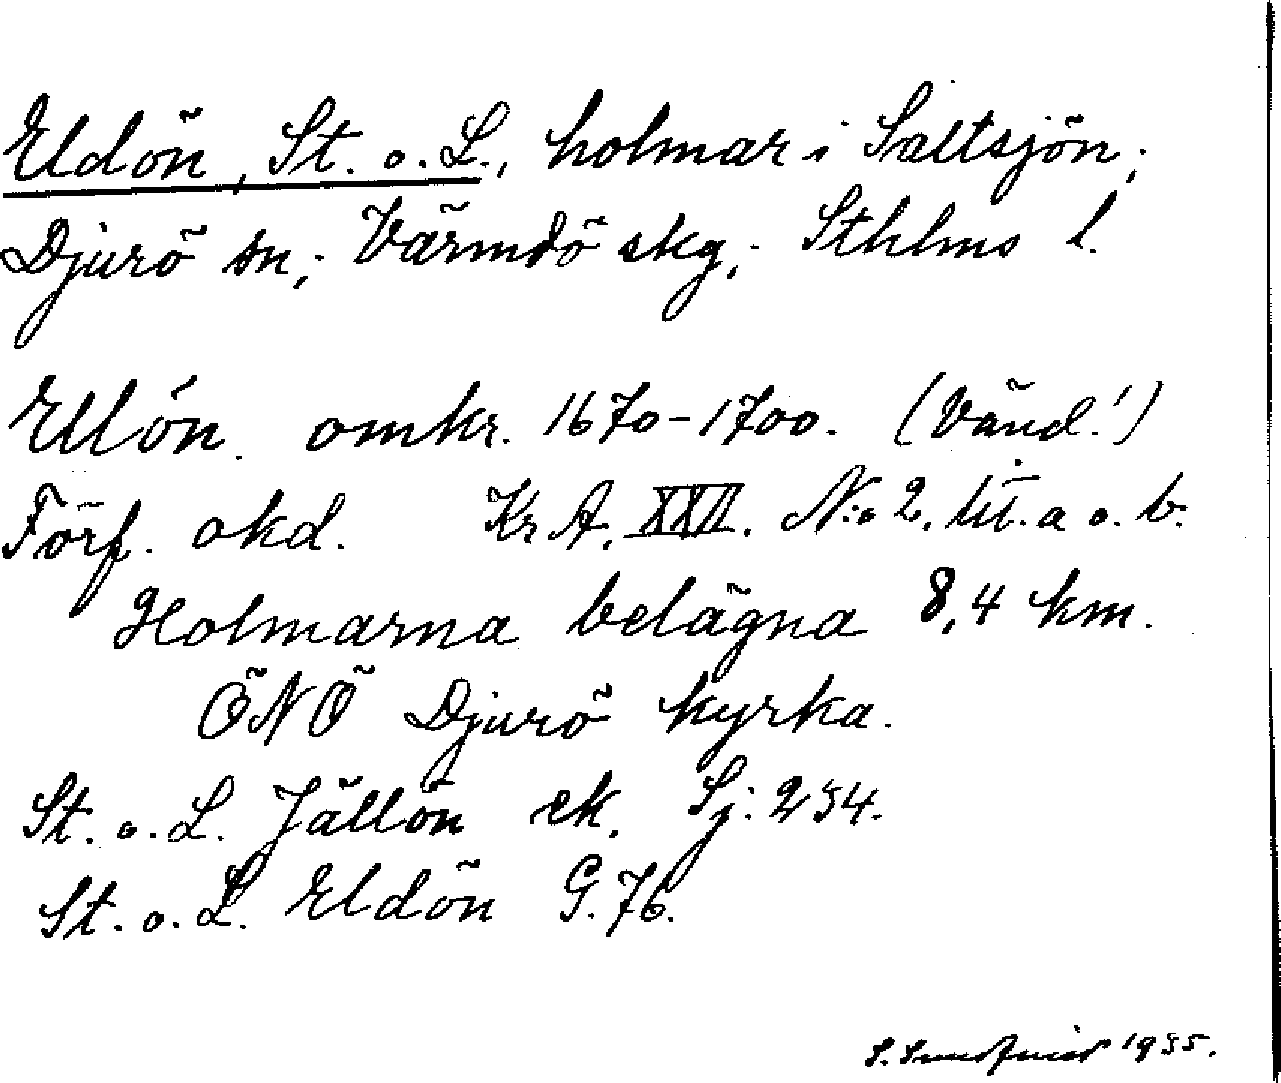 Eldön, St. o. L., holmar i Saltsjön;
Djurö sn; Värmdö skg; Sthlms l.
Ellön omkr. 1670-1700. (Vänd!)
Förf. okd. Kr A. XXII. N:o 2. lit. a o. b.
Holmarna belägna 8,4 km.
ÖNÖ Djurö kyrka.
St. o. L. Jällön ek. Sj: 254.
St. o. L. Eldön G. 76.
S. Sundqvist 1935.